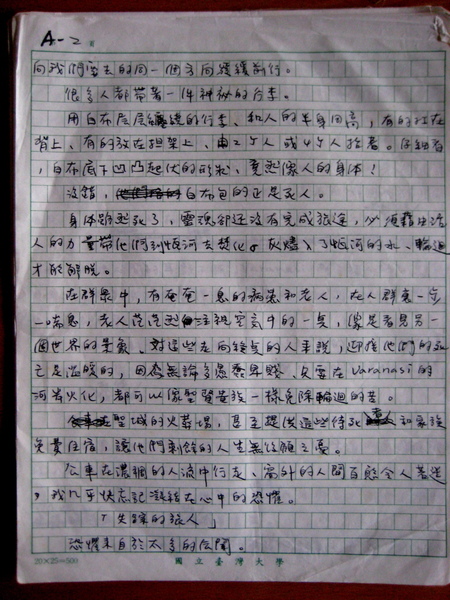 A-2
向我們要去的同一個方向緩緩前行。
很多人都帶著一件神秘的行李。
用白布層層纏繞的行李、和人的半身同高,有的扛在
背上、有的放在担架上、由2个人或4个人抬著。仔細看
,白布底下凹凸起伏的形狀、竟然像人的身体!
沒錯,白布包的正是死人。
身体雖然死了,靈魂卻还沒有完成旅途,必須藉由活
人的力量帶他們到恆河去焚化。灰燼入了恆河的水、輪迴
才能解脫。
在群眾中,有奄奄一息的病患和老人,在人群裏一步
一喘息,老人茫茫然注視空気中的一莫,像是看見另一
個世界的景象。对這些走向終莫的人來說,迎接他們的死
亡是溫暖的,因為無論多麼卑賤、只要在Varanasi的
河岸火化,都可以像聖賢貴族一樣免除輪迴的苦。
聖城的火葬場,甚至提供這些待死者和家族
免費住宿,讓他們剩餘的人生無後顧之憂。
公車在濃稠的人流中行走、窗外的人間百態令人著迷
,我几乎快忘記凝結在心中的恐懼。
「失蹤的旅人」
恐懼來自於太多的傳聞。
20×25=500
國立臺灣大學